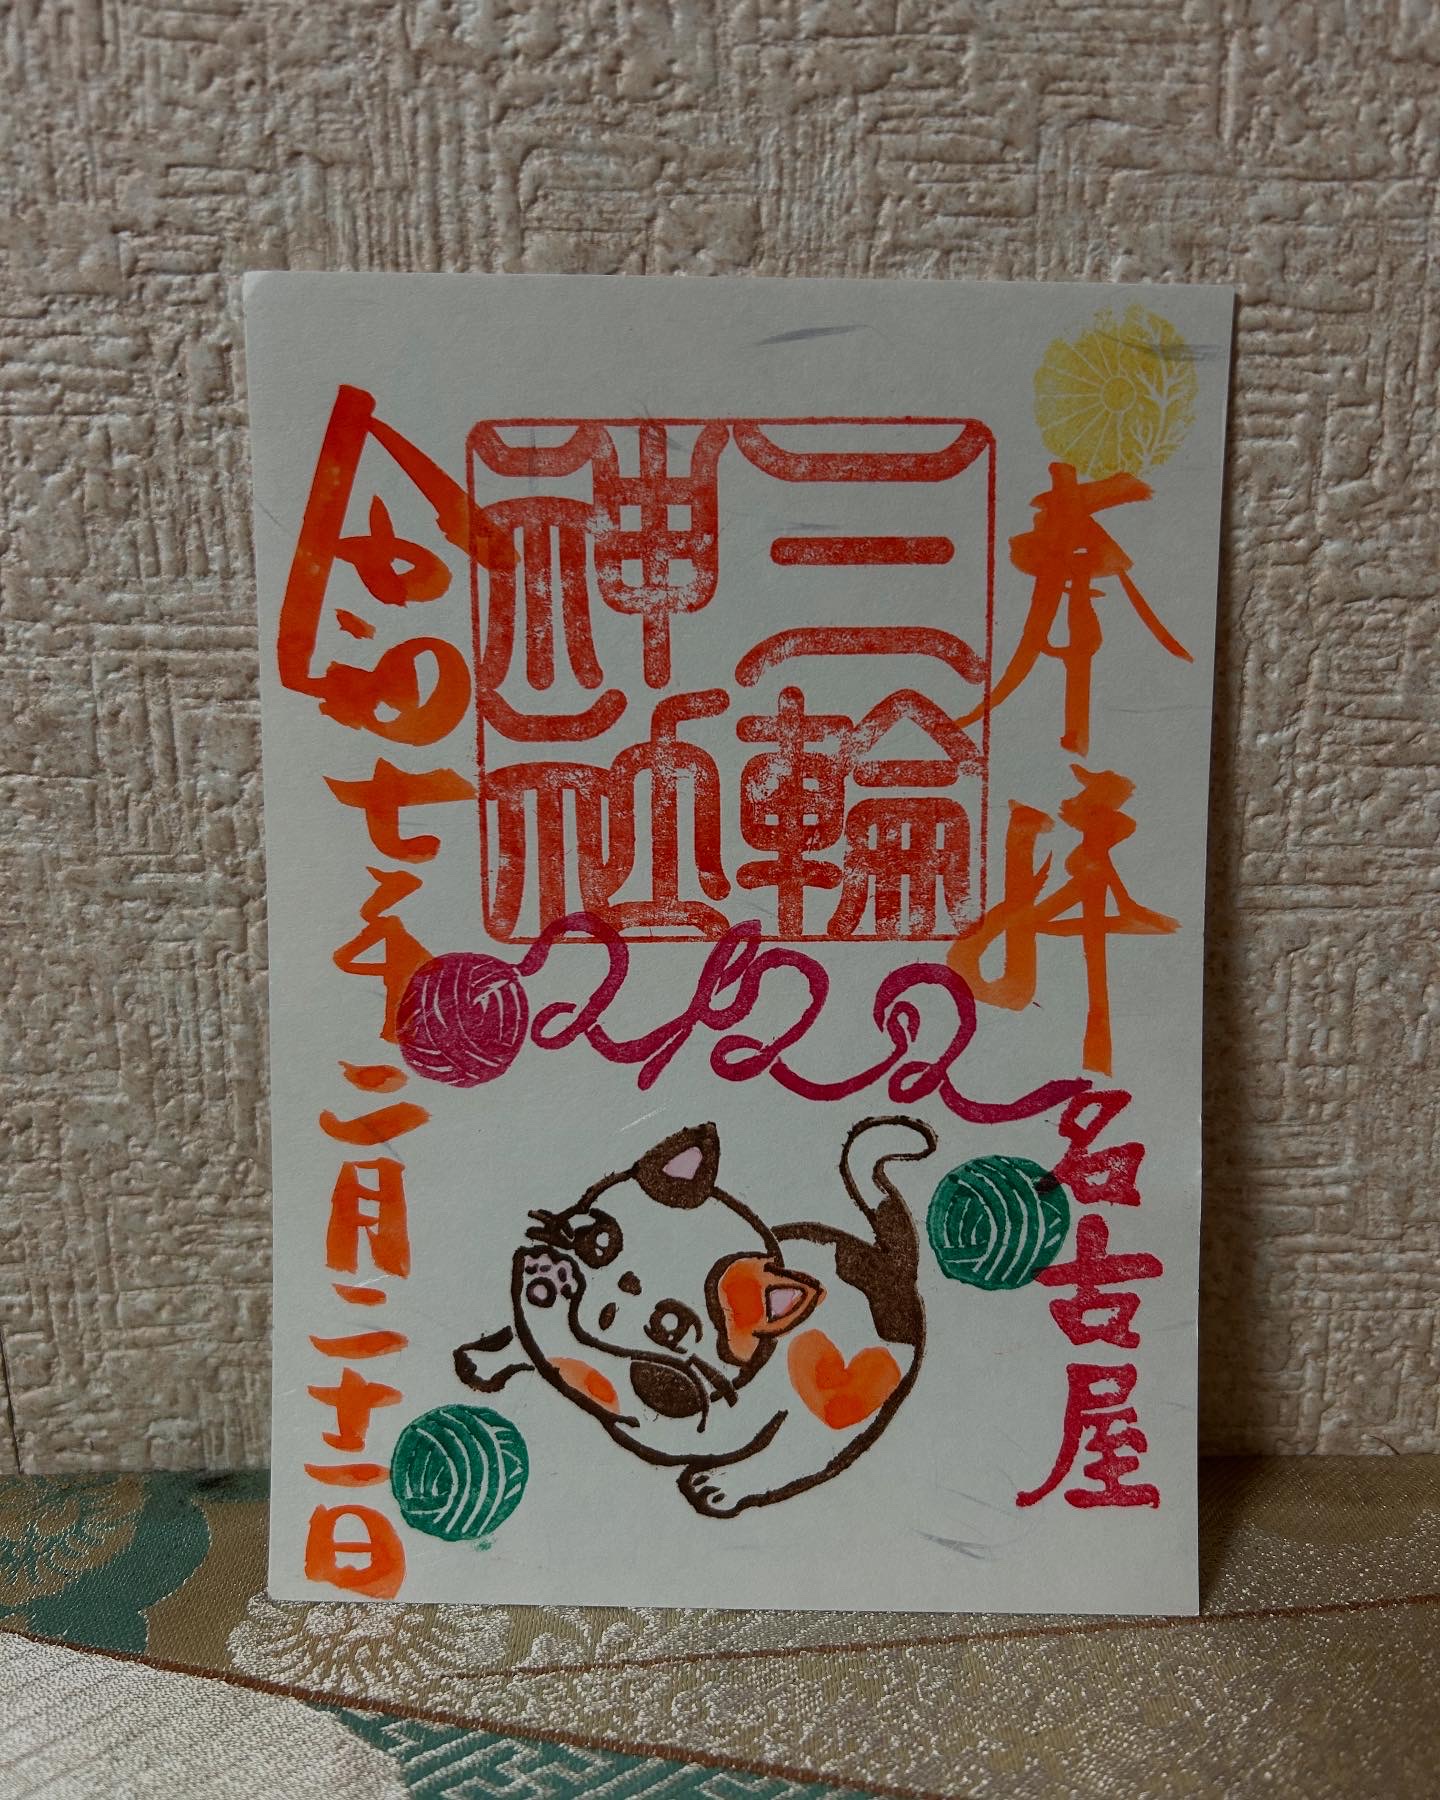 奉拝
名古屋
三輪
神社
2/22
令和七年二月二十一日